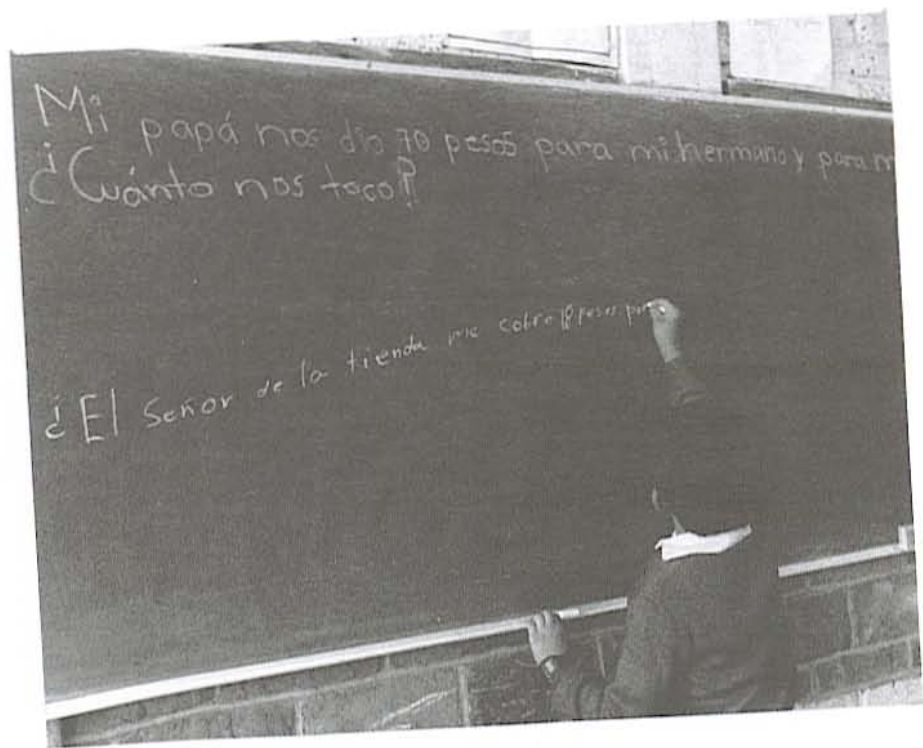 Mi papá nos dio 70 pesos para mi hermano y para m
¿Cuánto nos toco?
¿El Señor de la tienda me cobro 18 pesos por